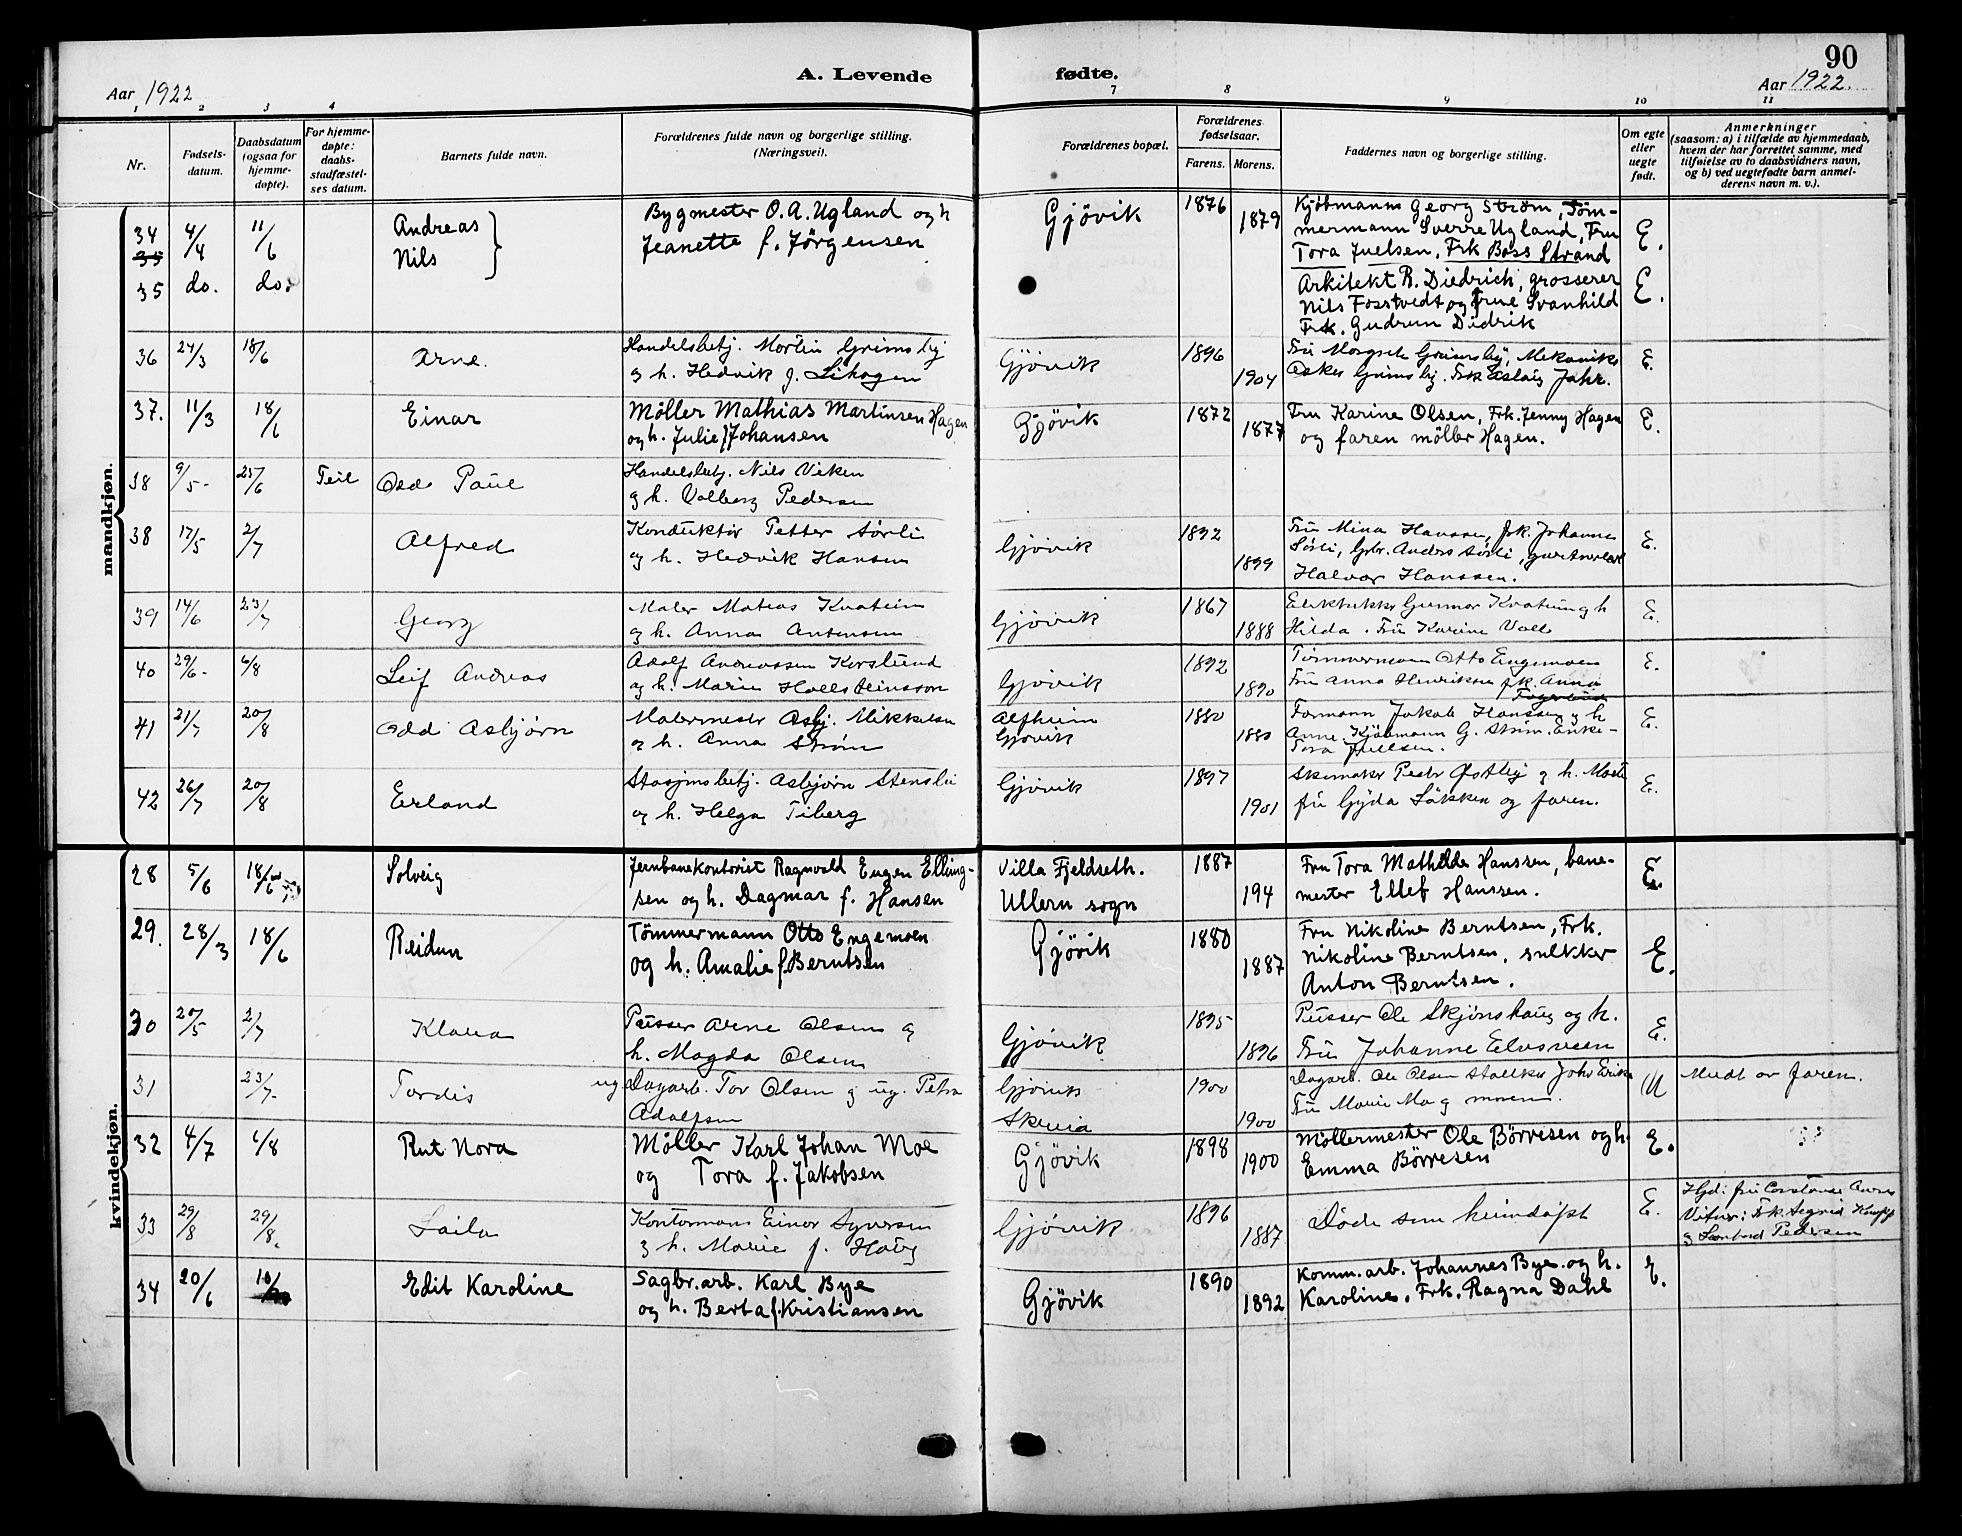 90
A. Levende fødte.
Aar 1922
Aar 1922.
1 2 3 4 7 8 9 10 11
Nr.
Fødsels-
datum.
Daabsdatum
(ogsaa for
hjemme-
døpte).
For hjemme-
døpte:
daabs-
stadfæstel-
ses datum.
Barnets fulde navn.
Forældrenes fulde navn og borgerlige stilling.
(Næringsvei).
Forældrenes bopæl.
Forældrenes
fødselsaar.
Farens. Morens.
Faddernes navn og borgerlige stilling.
Om egte
eller
uegte
født.
Anmerkninger
(saasom: a) i tilfælde av hjemmedaab,
hvem der har forrettet samme, med
tilføielse av to daabsvidners navn,
og b) ved uegtefødte barn anmel-
derens navn m. v.).
mandkjøn.
34 4/4 11/6 Andreas
35
Nils
35 do. do.
Bygmester O. A. Ugland og h
Jeanette f. Jörgensen
Gjövik 1876 1879
Kjöbmanns Georg Ström, Töm-
mermann Sverre Ugland, Fru
Tora Juelsen, Frk Bass Strand
Arkitekt R. Diedrich, grosserer
Nils Fosstvedt og frue Svanhild
Frk. Gudrun Didrik
E.
E.
36 24/3 18/6 Arne.
Handelsbetj. Martin Grimsby
og h. Hedvik f. Lihagen
Gjövik 1896 1904
Fru Grimsby, Mekaniker
Asker Grimsby. Frk Aslaug Jahr.
E.
37. 11/3 18/6 Einar
Möller Mathias Martinsen Hagen
og h. Julie f Johansen
Gjövik 1872 1877
Fru Karine Olsen, Frk. Jenny Hagen
og faren möller Hagen.
E.
38 9/5- 25/6 Feil Odd Paul
Handelsbetj. Nils Viken
og h. Valborg Pedersen
38 17/5 2/7 Alfred
Konduktör Petter Sörli
og h. Hedvik Hansen
Gjövik 1892 1899
Fru Mina Hanssen, frk. Johanne
Sörli, Gbr. Anders Sörli,
Halvor Hanssen.
E.
39 14/6 23/7 Georg
Maler Matias Kvatum
og h. Anna Antonsen
Gjövik 1867 1888
Gunnar Kvatum og h
Hilda. Fru Karine Voll
E.
40 29/6- 6/8 Leif Andreas
Adolf Andreassen Korslund
og h. Marie Hallsteinsson
Gjövik 1892 1890
Tømmermann Otto Engemoen
Fru Anna Henriksen frk. Anna
E.
41 21/7 20/8 Odd Asbjørn
Malermester Asbj. Mikkelsen
og h. Anna Strøm
Alfheim
Gjøvik 1880 1880
Formann Jakob Hanssen og h
Anne. Kjöbmann G. Strøm. Enke-
Tora Juellsen.
E.
42 26/7 20/8 Erland
Stasjonsbetj. Asbjørn Stensli
og h. Helga Tiberg
Gjövik 1897 1901
Skomaker Peder Østby og h.
fru Gyda Løkken og faren.
E.
kvindekjøn.
28 5/6 18/6 Solveig
Jernbanekontorist Ragnvald Eugen Elling-
sen og h. Dagmar f. Hansen
Villa Fjeldseth.
Ullern sogn
1887 194
Fru Tora Mathilde Hanssen, bane-
mester Ellef Hanssen.
E.
29. 28/3 18/6 Reidun
Tömmermann Otto Engemoen
og h. Amalie f. Berntsen
Gjövik 1880 1887
Fru Nikoline Berntsen, Frk.
Nikoline Berntsen, snekker
Anton Berntsen.
E.
30 20/5 2/7 Klara
Pusser Arne Olsen og
h. Magda Olsen
Gjövik 1895 1896
Pusser Ole Skjønshaug og h.
Fru Johanne
E.
31 23/7 Tordis
ug. Dagarb. Tor Olsen og ug. Petra
Adolfsen
Gjövik
1900 1900
Dagarb. Ole Olsen
Fru Marie Mo og moren.
U
Meldt av faren.
32 4/7 6/8 Rut Nora
Möller Karl Johan Moe
og Tora f. Jakobsen
Gjövik 1898 1900
Möllermester Ole Börresen og h.
Emma Börresen
E.
33 29/8 29/8. Laila
Kontormann Einar Syversen
og h. Marie f. Haug
Gjövik 1896 1887
Døde som heimdøpt
E.
Hjd: fru
Vitner: Frk. Sigrid
og Pedersen
34 20/6 Edit Karoline
Sagbr. arb. Karl Bye
og h. Berta f. Kristiansen
Gjövik 1890 1892
Komm. arb. Johannes Bye og h.
Karoline, Frk. Ragna Dahl
E.